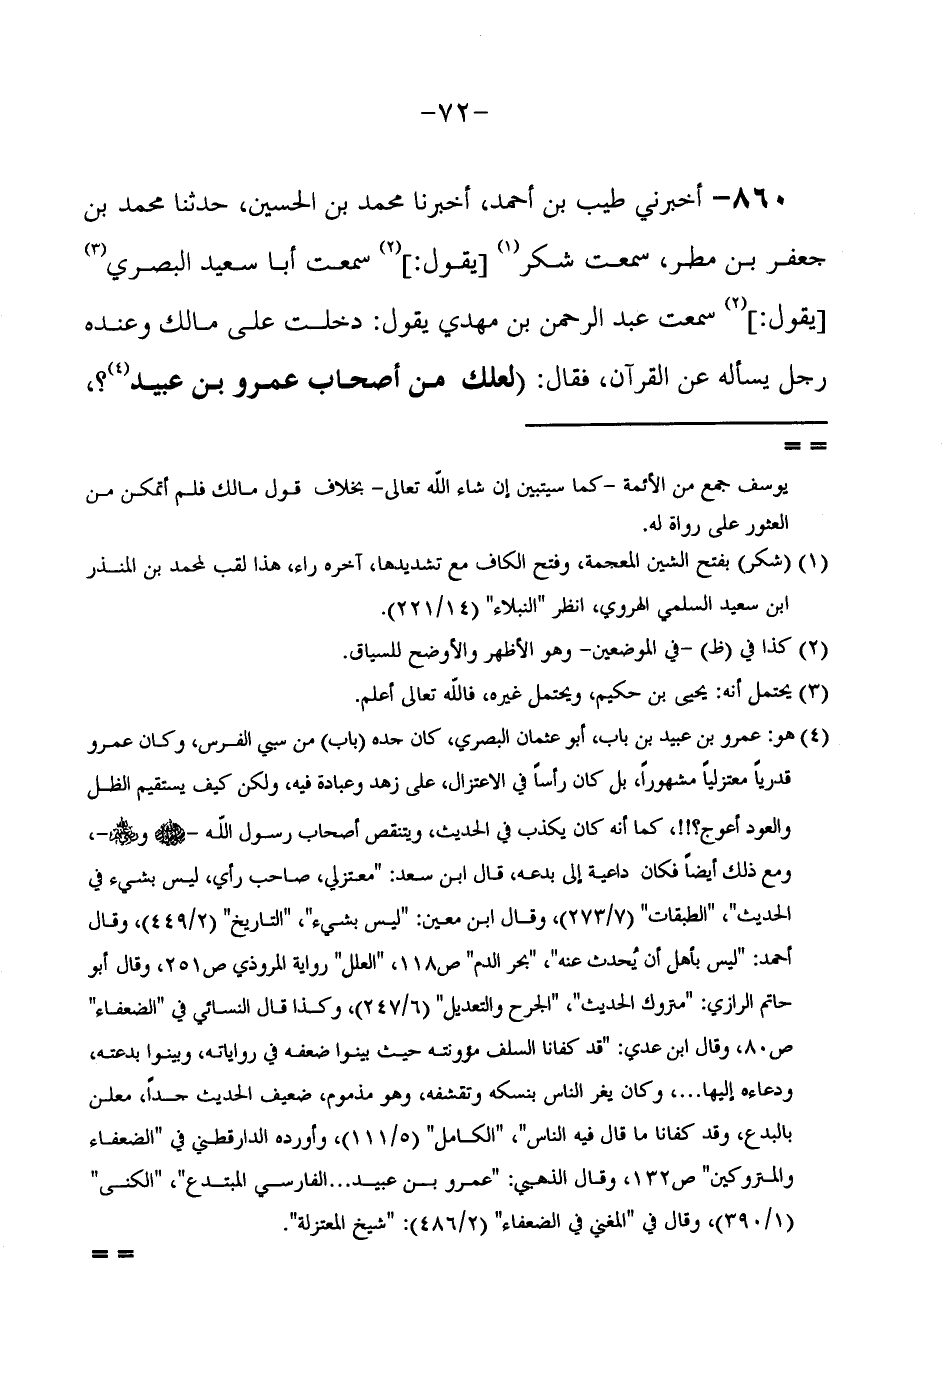 -٧٢-
٨٦٠- أخبرني طيب بن أحمد، أخبرنا محمد بن الحسين، حدثنا محمد بن
جعفر بن مطر، سمعت شكر(١) [يقول:](٢) سمعت أبا سعيد البصري(٣)
[يقول:](٢) سمعت عبد الرحمن بن مهدي يقول: دخلت على مالك وعنده
رجل يسأله عن القرآن، فقال: (لعلك من أصحاب عمرو بن عبيد(٤)؟،
= =
يوسف جمع من الأئمة -كما سيتبين إن شاء الله تعالى- بخلاف قول مالك فلم أتمكن من
العثور على رواة له.
(١) (شكر) بفتح الشين المعجمة، وفتح الكاف مع تشديدها، آخره راء، هذا لقب لمحمد بن المنذر
ابن سعيد السلمي الهروي، انظر "النبلاء" (٢٢١/١٤).
(٢) كذا في (ظ) -في الموضعين- وهو الأظهر والأوضح للسياق.
(٣) يحتمل أنه: يحيى بن حكيم، ويحتمل غيره، فالله تعالى أعلم.
(٤) هو: عمرو بن عبيد بن باب، أبو عثمان البصري، كان جده (باب) من سبي الفرس، وكان عمرو
قدرياً معتزلياً مشهوراً، بل كان رأساً في الاعتزال، على زهد وعبادة فيه، ولكن كيف يستقيم الظل
والعود أعوج؟!!، كما أنه كان يكذب في الحديث، ويتنقص أصحاب رسول الله -ﷺ و-،
ومع ذلك أيضاً فكان داعية إلى بدعه، قال ابن سعد: "معتزلي، صاحب رأي، ليس بشيء في
الحديث"، "الطبقات" (٢٧٣/٧)، وقال ابن معين: "ليس بشيء"، "التاريخ" (٤٤٩/٢)، وقال
أحمد: "ليس بأهل أن يُحدث عنه"، "بحر الدم" ص١١٨، "العلل" رواية المروذي ص٢٥١، وقال أبو
حاتم الرازي: "متروك الحديث"، "الجرح والتعديل" (٢٤٧/٦)، وكذا قال النسائي في "الضعفاء"
ص٨٠، وقال ابن عدي: "قد كفانا السلف مؤونته حيث بينوا ضعفه في رواياته، وبينوا بدعته،
ودعاءه إليها...، وكان يغر الناس بنسكه وتقشفه، وهو مذموم، ضعيف الحديث جداً، معلن
بالبدع، وقد كفانا ما قال فيه الناس"، "الكامل" (١١١/٥)، وأورده الدارقطني في "الضعفاء
والمتروكين" ص١٣٢، وقال الذهبي: "عمرو بن عبيد...الفارسي المبتدع"، "الكنى"
(٣٩٠/١)، وقال في "المغني في الضعفاء" (٤٨٦/٢): "شيخ المعتزلة".
= =